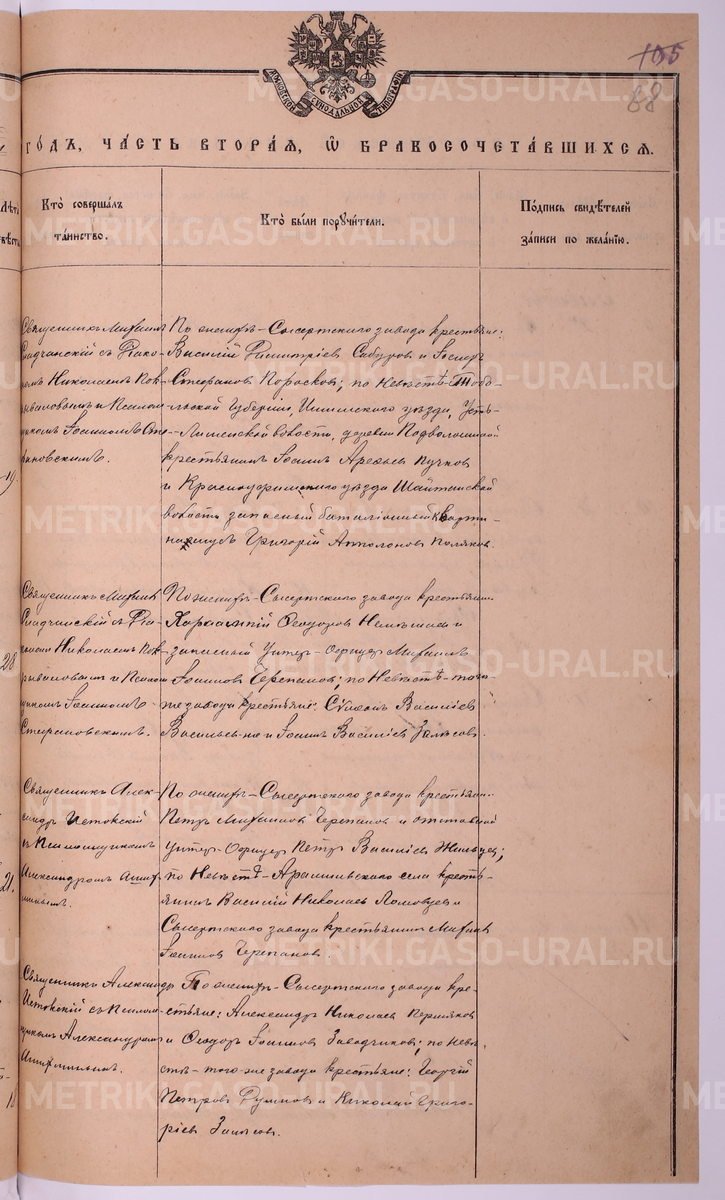 105
88
МОСКОВСКОЙ СѴНОДАЛЬНОЙ ТИПОГРАФІИ
ГОДЪ, ЧАСТЬ ВТОРАЯ, Ѡ БРАКОСОЧЕТАВШИХСЯ.
Лѣтъ
Кто совершалъ
таинство.
Кто были поручители.
Подпись свидѣтелей
записи по желанію.
Священникъ Михаилъ
съ Діако-
номъ Николаемъ Пок-
рываловымъ и Псалом-
щикомъ Іоанномъ Сте-
фановскимъ.
По женихѣ - Сысертскаго завода крестьяне:
Василій Димитріевъ Сабуровъ и
Стефановъ; по Невѣстѣ - Тобо-
льской Губерніи, Ишимскаго уѣзда, Усть-
волости, деревни Подволошной
крестьянинъ Іоаннъ Пучковъ
и Красноуфимскаго уѣзда Шайтанской
волости запасный баталіонный кварти-
Григорій Апполоновъ Поляковъ.
19.
Священникъ Михаилъ
съ Діа-
кономъ Николаемъ Пок-
рываловымъ и Псалом-
щикомъ Іоанномъ
Стефановскимъ.
По женихѣ - Сысертскаго завода крестьянинъ
Харлампій Ѳеодоровъ и
запасный Унтеръ-Офицеръ Михаилъ
Іоанновъ Черепановъ; по Невѣстѣ - того-
же завода крестьяне: Сѵмеонъ Василіевъ
и Іоаннъ Василіевъ
28
Священникъ Алек-
сандръ Истокскій
съ Псаломщикомъ
Александромъ
По женихѣ - Сысертскаго завода крестьянинъ
Петръ Михаиловъ Черепановъ и отставной
Унтеръ-Офицеръ Петръ Василіевъ
по Невѣстѣ - Арамильскаго села кресть-
янинъ Василій Николаевъ и
Сысертскаго завода крестьянинъ Михаилъ
Іоанновъ Черепановъ.
21.
Священникъ Александръ
Истокскій съ Псалом-
щикомъ Александромъ
По женихѣ - Сысертскаго завода кре-
стьяне: Александръ Николаевъ Пермяковъ
и Ѳеодоръ Іоанновъ Заводчиковъ; по Невѣ-
стѣ - того-же завода крестьяне: Георгій
Петровъ и Николай Григо-
ріевъ
METRIKI.GASO-URAL.RU